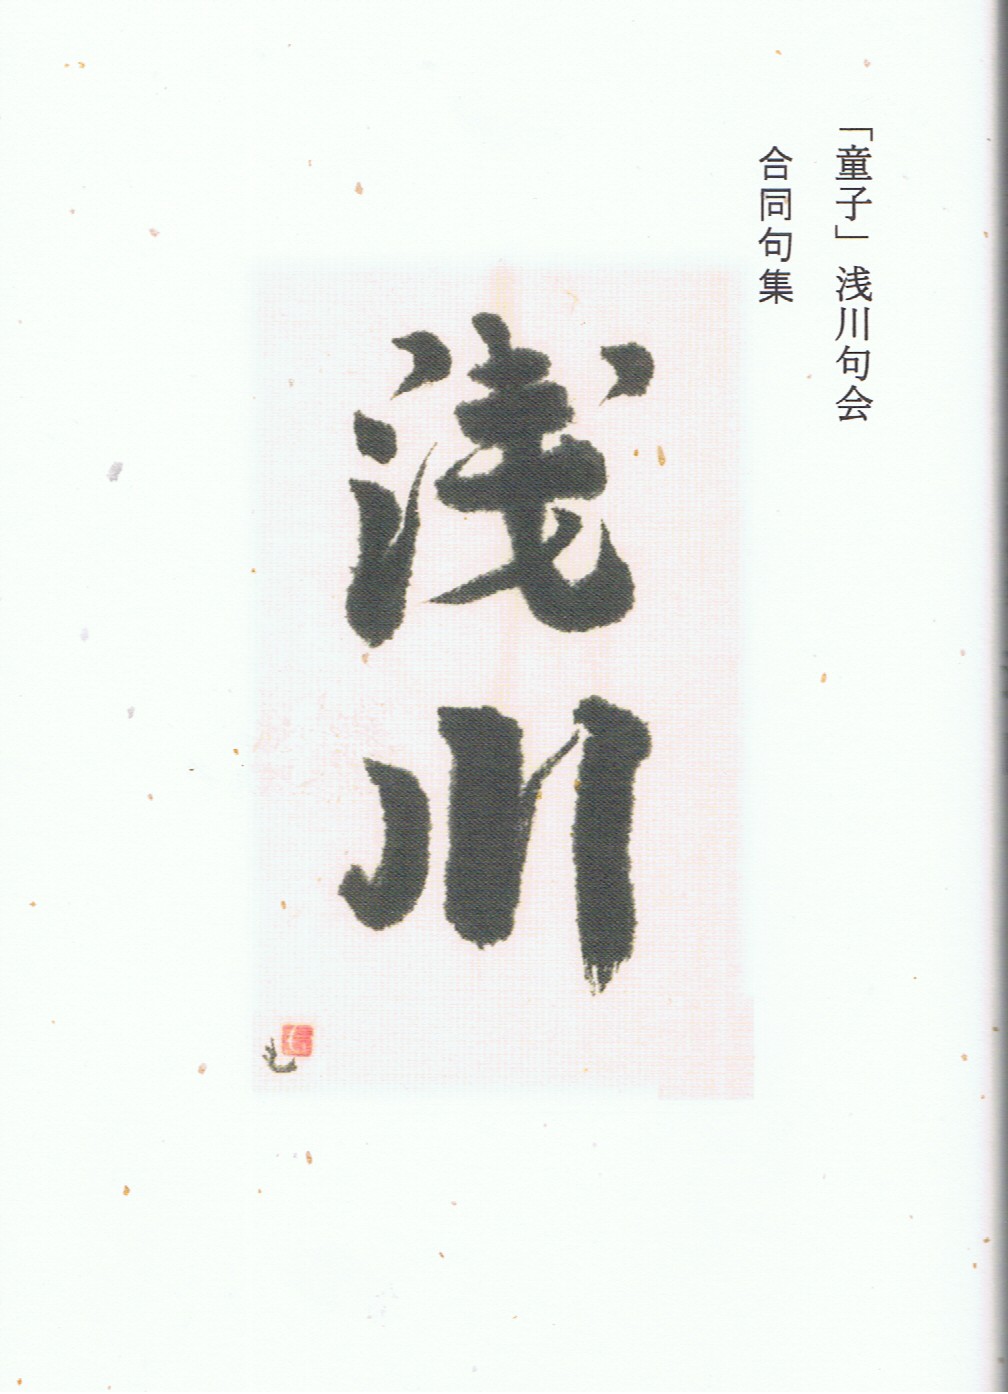 「童子」浅川句会
合同句集
浅川